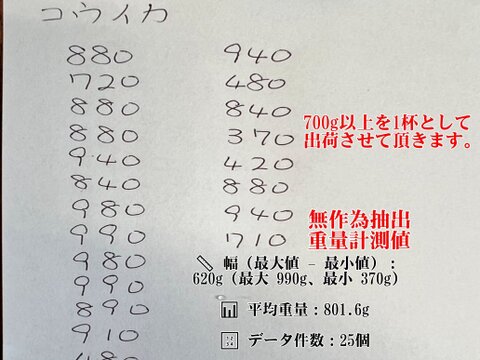 コウイカ
880
720
880
880
940
840
980
990
980
990
890
910
940
480
840
370
420
880
940
710
700g以上を1杯として
出荷させて頂きます。
無作為抽出
重量計測値
幅（最大値 − 最小値）：
620g（最大 990g、最小 370g）
平均重量：801.6g
データ件数：25個